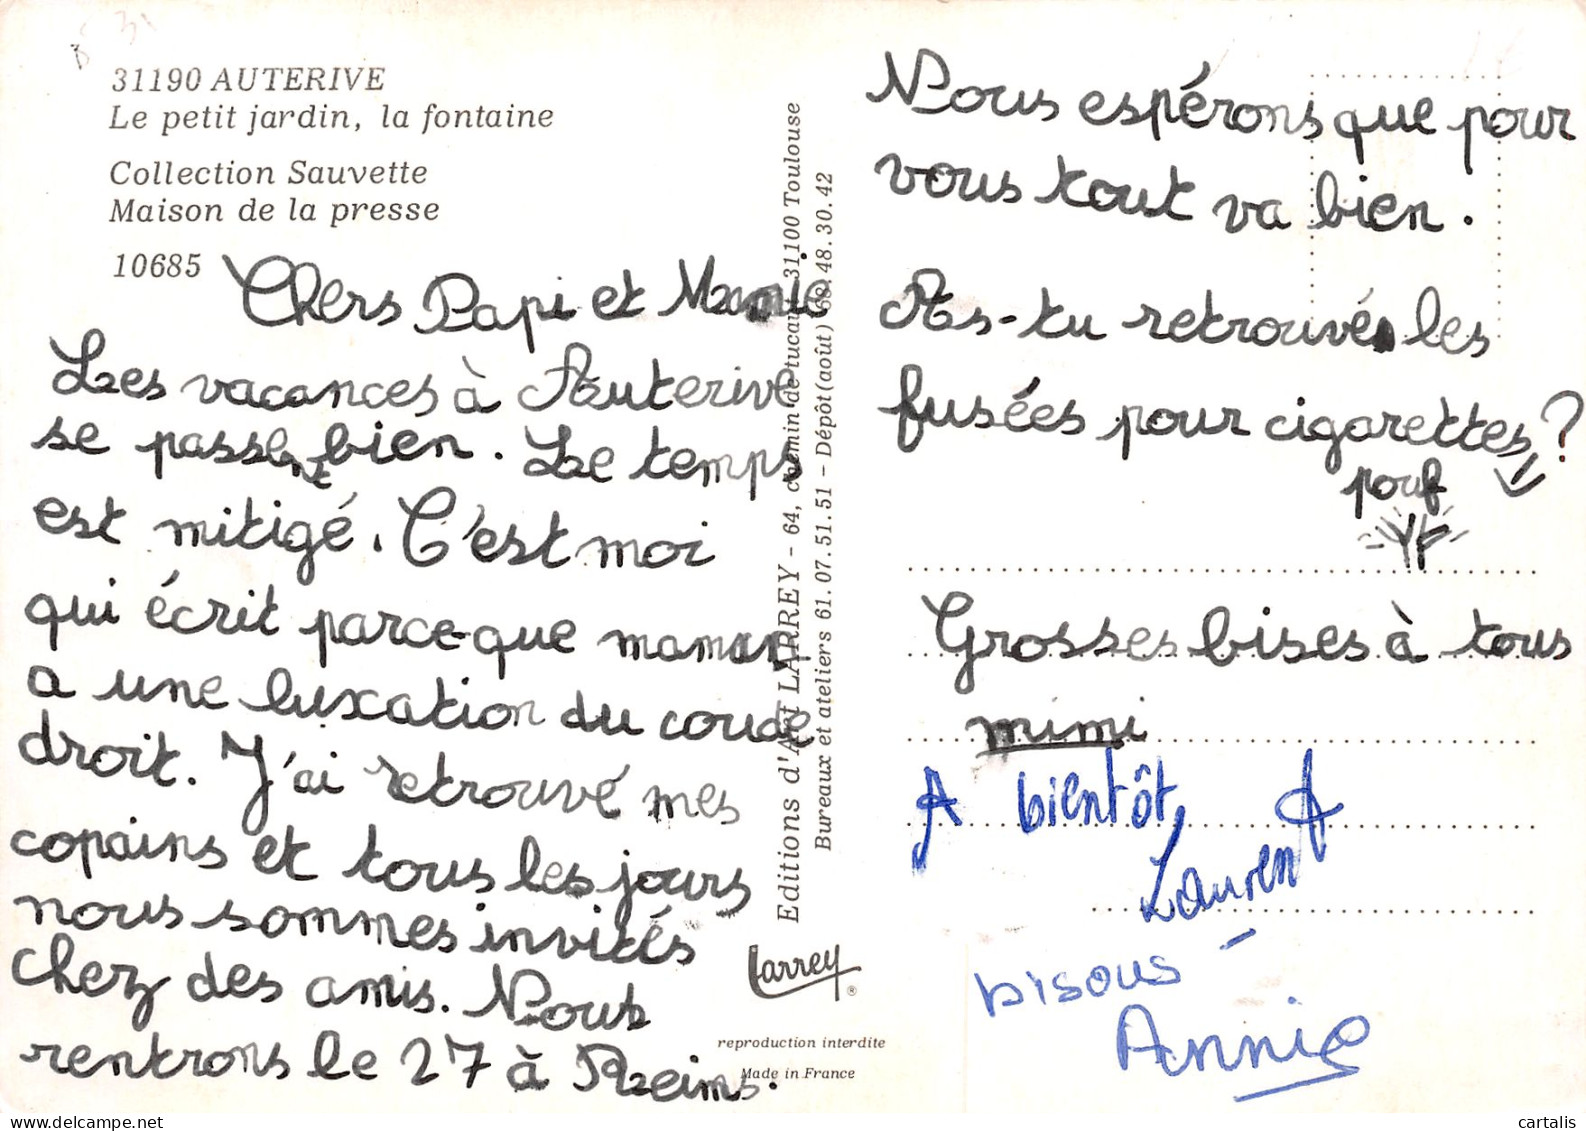 31190 AUTERIVE
Le petit jardin, la fontaine
Collection Sauvette
Maison de la presse
10685
Chers Papi et Mamie
Les vacances à Auterive
se passent bien. Le temps
est mitigé. C'est moi
qui écrit parce-que maman
a une luxation du coude
droit. J'ai retrouvé mes
copains et tous les jours
nous sommes invités
chez des amis. Nous
rentrons le 27 à Reims.
Editions d'Art LARREY - 64, chemin de tucaut 31100 Toulouse
Bureaux et ateliers 61.07.51.51 - Dépôt (août) 68.48.30.42
Larrey ®
reproduction interdite
Made in France
Nous espérons que pour
vous tout va bien.
As-tu retrouvé les
fusées pour cigarettes ?
pouf
Grosses bises à tous
mimi
A bientôt
Laurent
bisous
Annie
cartalis